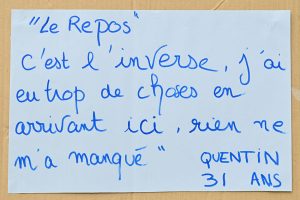 "Le Repos"
C'est l'inverse, j'ai
eu trop de choses en
arrivant ici, rien ne
m'a manqué" QUENTIN
31 ANS